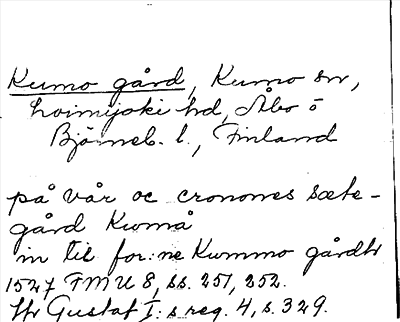 Kumo gård, Kumo sn,
Loimijoki hd, Åbo o
Björneb. l., Finland
på vår oc cronones sæte-
gård Kwmå
in til for:ne Kummo gårdh
1527 FMU 8, ss. 251, 252.
Hr Gustaf I:s reg. 4, s. 329.